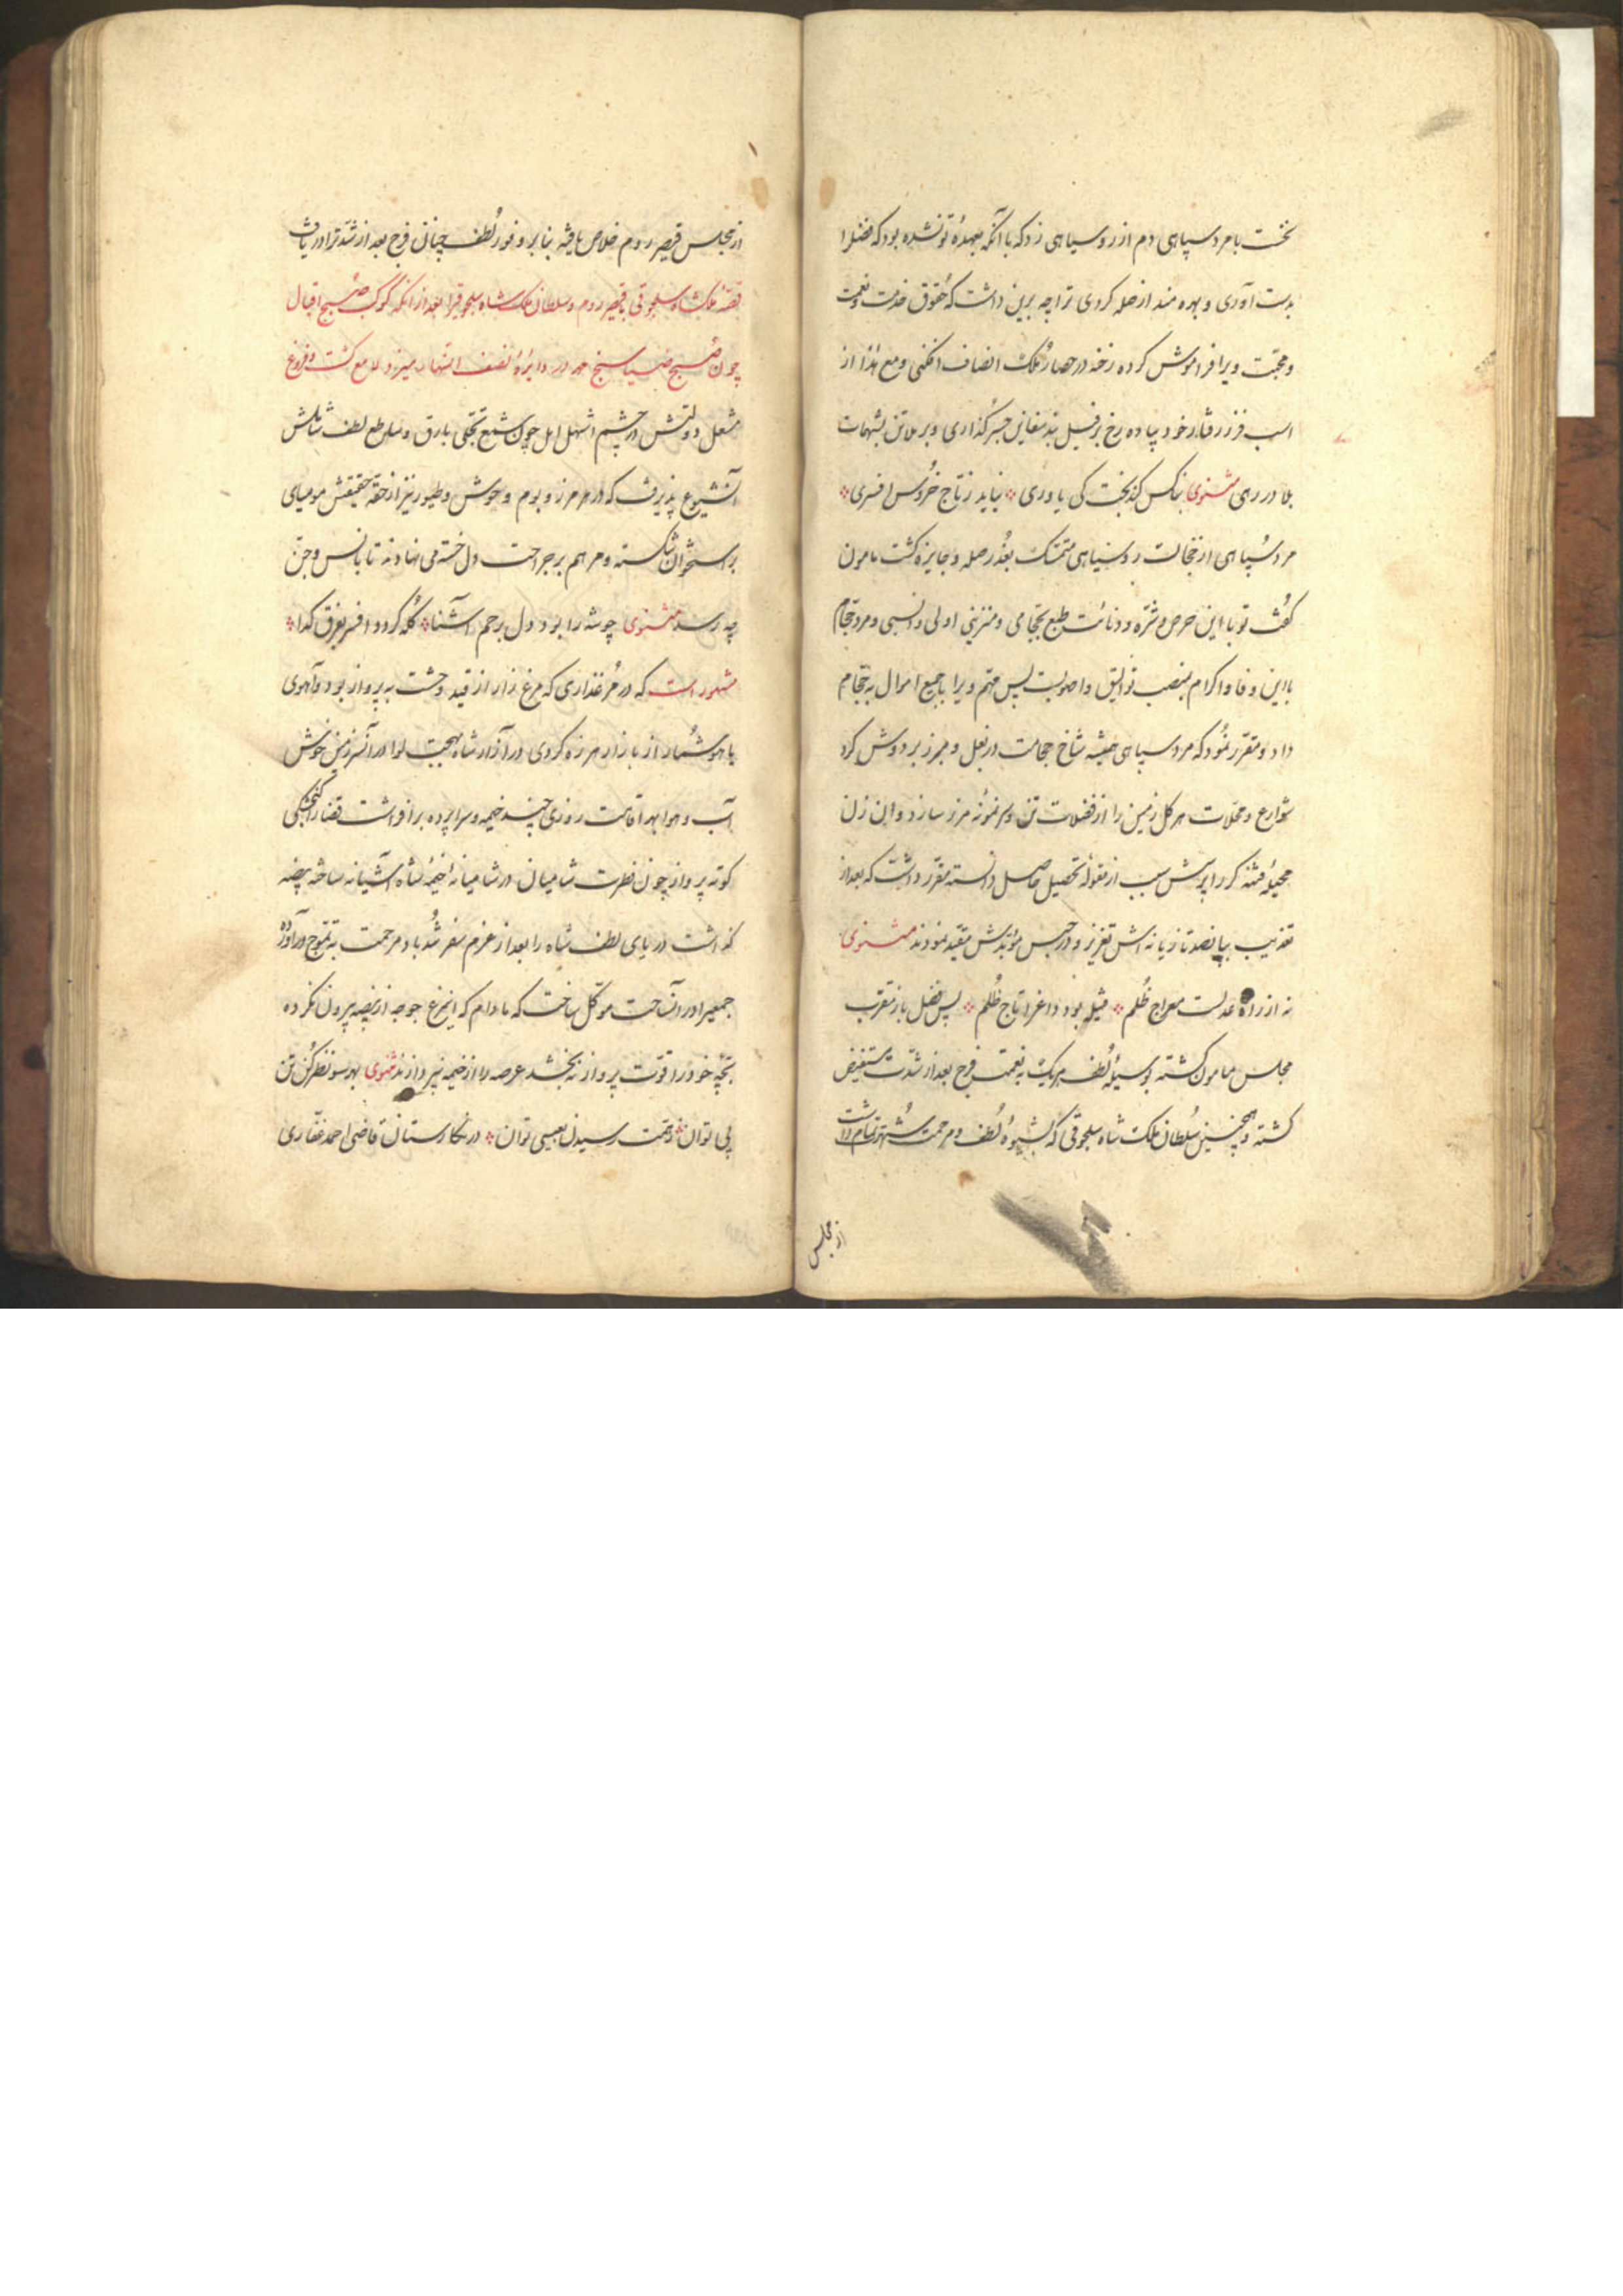 نخست با مرد سپاهی دم از روسیاهی زد که با آنکه بعهدهٔ تو نشده بود که فضل را
بدست آوری و بهره مند از صله کردی ترا چه برین داشت که حقوق خدمت و نعمت
و محبت ویرا فراموش کرده رخنه در حصار ملک انصاف افکنی و مع هذا از
اسب فرز رفتار خود پیاده رخ بر فیل بند جسر گذاری و بر
بلا در رهی مثنوی بناکس کند بخت کی یاوری نیابد ز تاج خروس افسری
مرد سپاهی از خجالت روسیاهی متمسک بعذر صله و جایزه گشت مامون
گفت تو با این حرص و شره و دنائت طبع بحجامی و مزینی اولی و انسبی و مرد حجام
با این وفا و اکرام بمنصب تو الیق و اصوبست پس مهم ویرا با جمیع اموال به حجام
داد و مقرر نمود که مرد سپاهی همیشه شاخ حجامت در بغل و بر دوش کرد
شوارع و محلات هر کل زمین را از فضلات تن و سر نمونه مرز سازد و این زن
محیلهٔ فتنه گر را پرسش سبب از مقوله تحصیل حاصل دانسته مقرر داشت که بعد از
تعذیب بپانصد تازیانه اش تعزیر و در حبس مؤبدش مقید نمودند مثنوی
نه از راه عدلست معراج ظلم فتیله بود داغ را تاج ظلم پس فضل باز مقرب
مجلس مامون گشته بوسیلهٔ لطف هر یک به نعمت فرج بعد از شدت مستفیض
گشته و همچنین سلطان ملک شاه سلجوقی که بشیوهٔ لطف و مرحمت شهرت تمام داشت
از مجلس
از مجلس قیصر روم خلاص یافته بنا بر وفور لطف چنان فرج بعد از شدت را دریافت
قصهٔ ملکشاه سلجوقی با قیصر روم و سلطان ملک شاه سلجوقی را بعد از آنکه کوکب صبح اقبال
چون صبح ضیا سنج مهر در دایرهٔ نصف النهار میزد لامع گشت و فروغ
مشعل دولتش در چشم اشهل اهل چون شمع تجلی بارق و ساطع لطف شاملش
آنشیوع پذیرفت که در هر مرز و بوم وحوش و طیور نیز از حقهٔ حقیقتش مومیای
بر استخوان شکسته و مرهم بر جراحت دل خسته می نهادند تا بانس و جن
چه رسد مثنوی چو شه را بود دل برحم آشنا کله گردد افسر بفرق گدا
مشهور است که در مرغزاری که مرغ زار از قید وحشت به پرواز بود و آهوی
با هوش از بازار هرزه گردی در آزار شاه بهجت لوا در آنسرزمین خوش
آب و هوا بهر اقامت روزی چند خیمه و سراپرده برافراشت قضا را گنجشکی
کوته پرواز چون فطرت شامیان در شامیانهٔ خیمهٔ شاه آشیانه ساخته بیضه
گذاشت دریای لطف شاه را بعد از عزم سفر شد باد مرحمت به تموج درآورده
جمعیرا در آنساحت موکل ساخت که مادام که اینمرغ جوجه از بیضه بیرون نکرده
بچهٔ خود را قوت پرواز نه بخشد عرصه را از خیمه نپردازند مثنوی بهر سو نظر کن تن
پی توان ز همت رسیدن بعیسی توان در نگارستان قاضی احمد غفاری